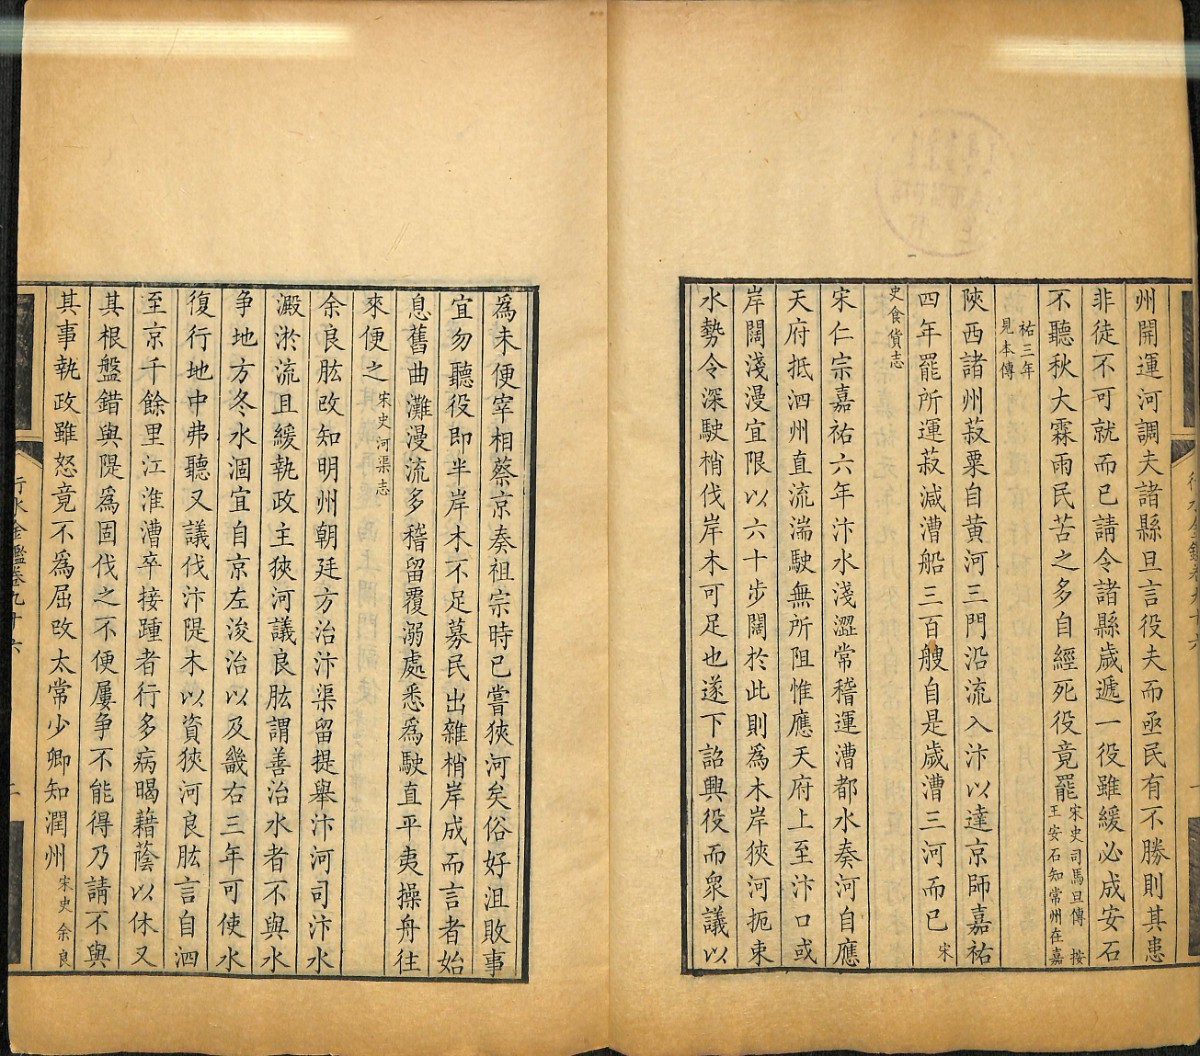 州開運河調夫諸縣旦言役夫而亟民有不勝則其患
非徒不可就而已請令諸縣歲遞一役雖緩必成安石
不聽秋大霖雨民苦之多自經死役竟罷宋史司馬旦傳 按
王安石知常州在嘉
祐三年
見本傳
陝西諸州菽粟自黃河三門沿流入汴以達京師嘉祐
四年罷所運菽減漕船三百艘自是歲漕三河而已宋
史食貨志
宋仁宗嘉祐六年汴水淺澀常稽運漕都水奏河自應
天府抵泗州直流湍駛無所阻惟應天府上至汴口或
岸闊淺漫宜限以六十步闊於此則爲木岸狹河扼束
水勢令深駛梢伐岸木可足也遂下詔興役而衆議以
爲未便宰相蔡京奏祖宗時已嘗狹河矣俗好沮敗事
宜勿聽役即半岸木不足募民出雜梢岸成而言者始
息舊曲灘漫流多稽留覆溺處悉爲駛直平夷操舟往
來便之宋史河渠志
余良肱改知明州朝廷方治汴渠留提舉汴河司汴水
澱淤流且緩執政主狹河議良肱謂善治水者不與水
争地方冬水涸宜自京左浚治以及畿右三年可使水
復行地中弗聽又議伐汴隄木以資狹河良肱言自泗
至京千餘里江淮漕卒接踵者行多病暍藉蔭以休又
其根盤錯與隄爲固伐之不便屢争不能得乃請不與
其事執政雖怒竟不爲屈改太常少卿知潤州宋史余良
行水金鑑卷九十六
二